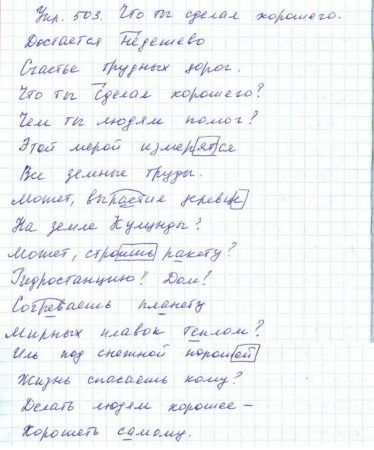 Упр. 503. Что ты сделал хорошего.
Достаётся недешево
Счастье трудных дорог.
Что ты сделал хорошего?
Чем ты людям помог?
Этой мерой измерятся
Все земные труды.
Может, вырастил деревце
На земле Кулунды?
Может, строишь ракету?
Гидростанцию? Дом?
Согреваешь планету
Мирных плавок теплом?
Иль под снежной порошей
Жизнь спасаешь кому?
Делать людям хорошее –
Хорошеть самому.